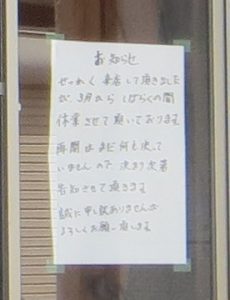 お知らせ
せっかく来店して頂きました
が、3月から しばらくの間
休業させて頂いております。
再開はまだ何も決って
いませんので、決まり次第
告知させて頂きます
誠に申し訳ありませんが
よろしくお願い致します